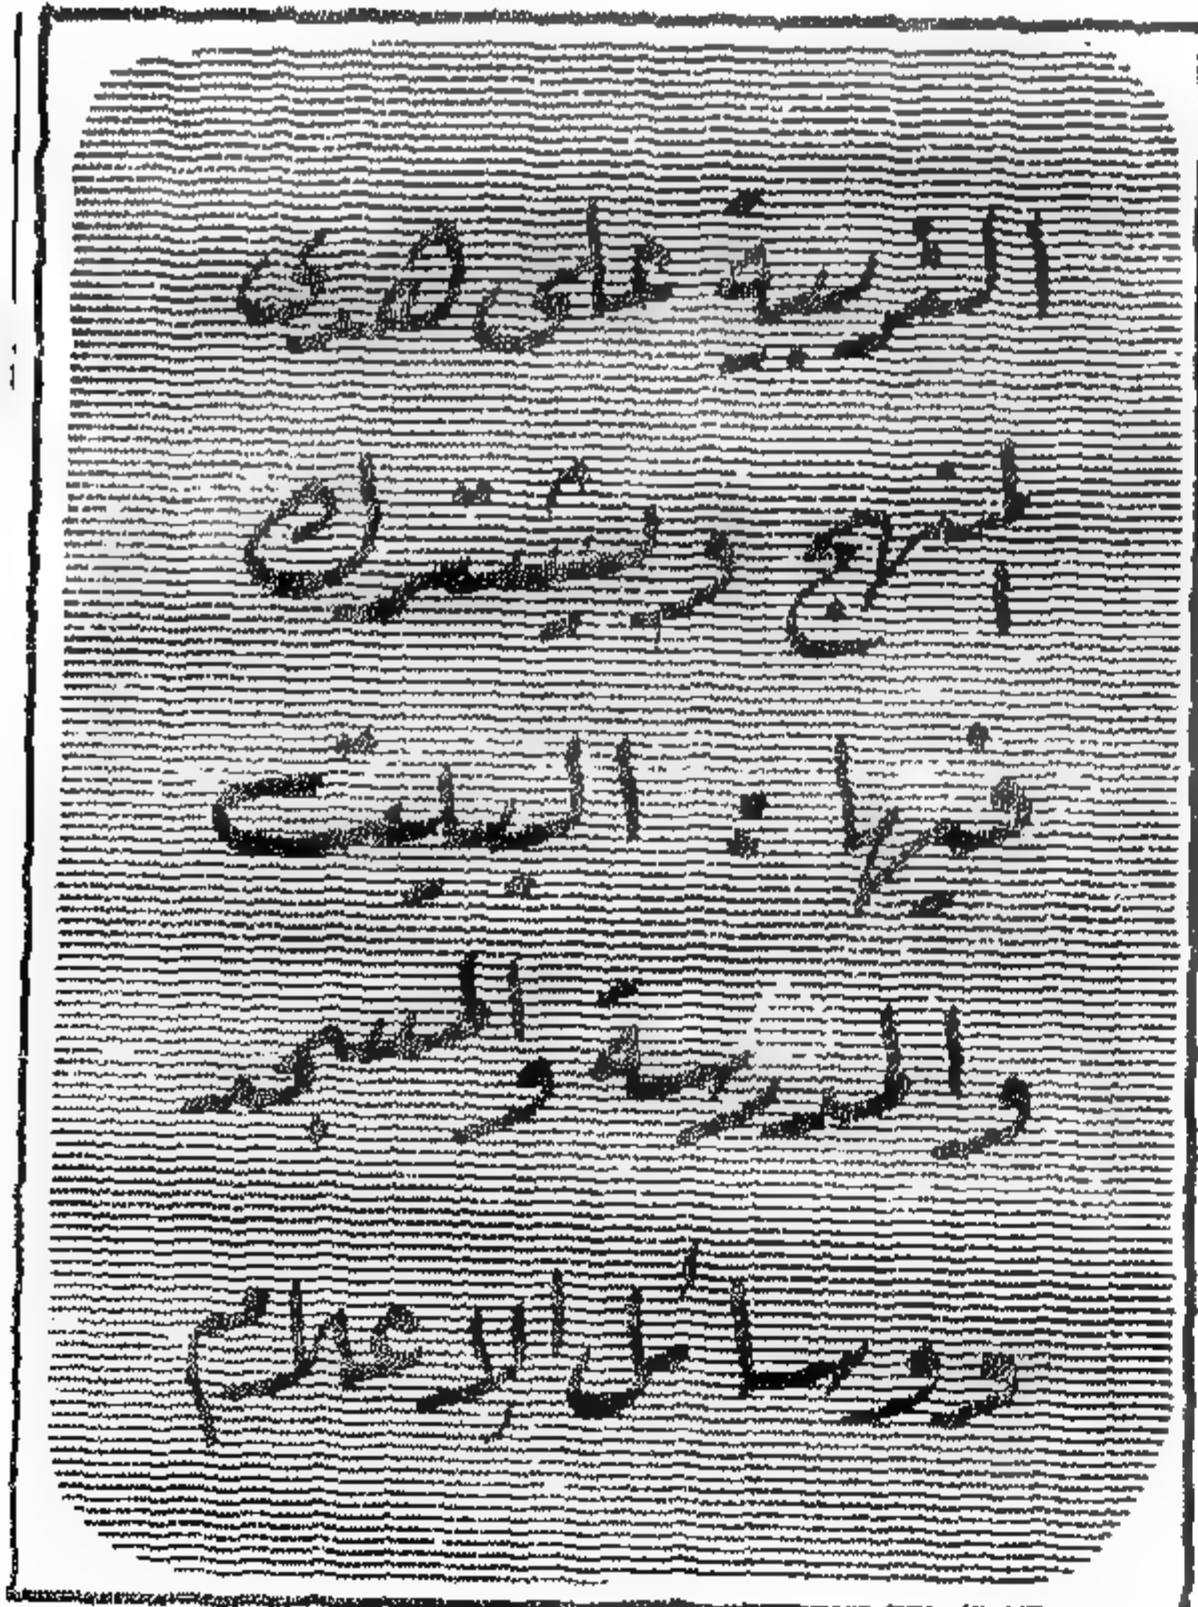 التربية على هدي
المنهج ويشترك
فيها: البيت
والمدرسة والمسجد
ووسائل الإعلام